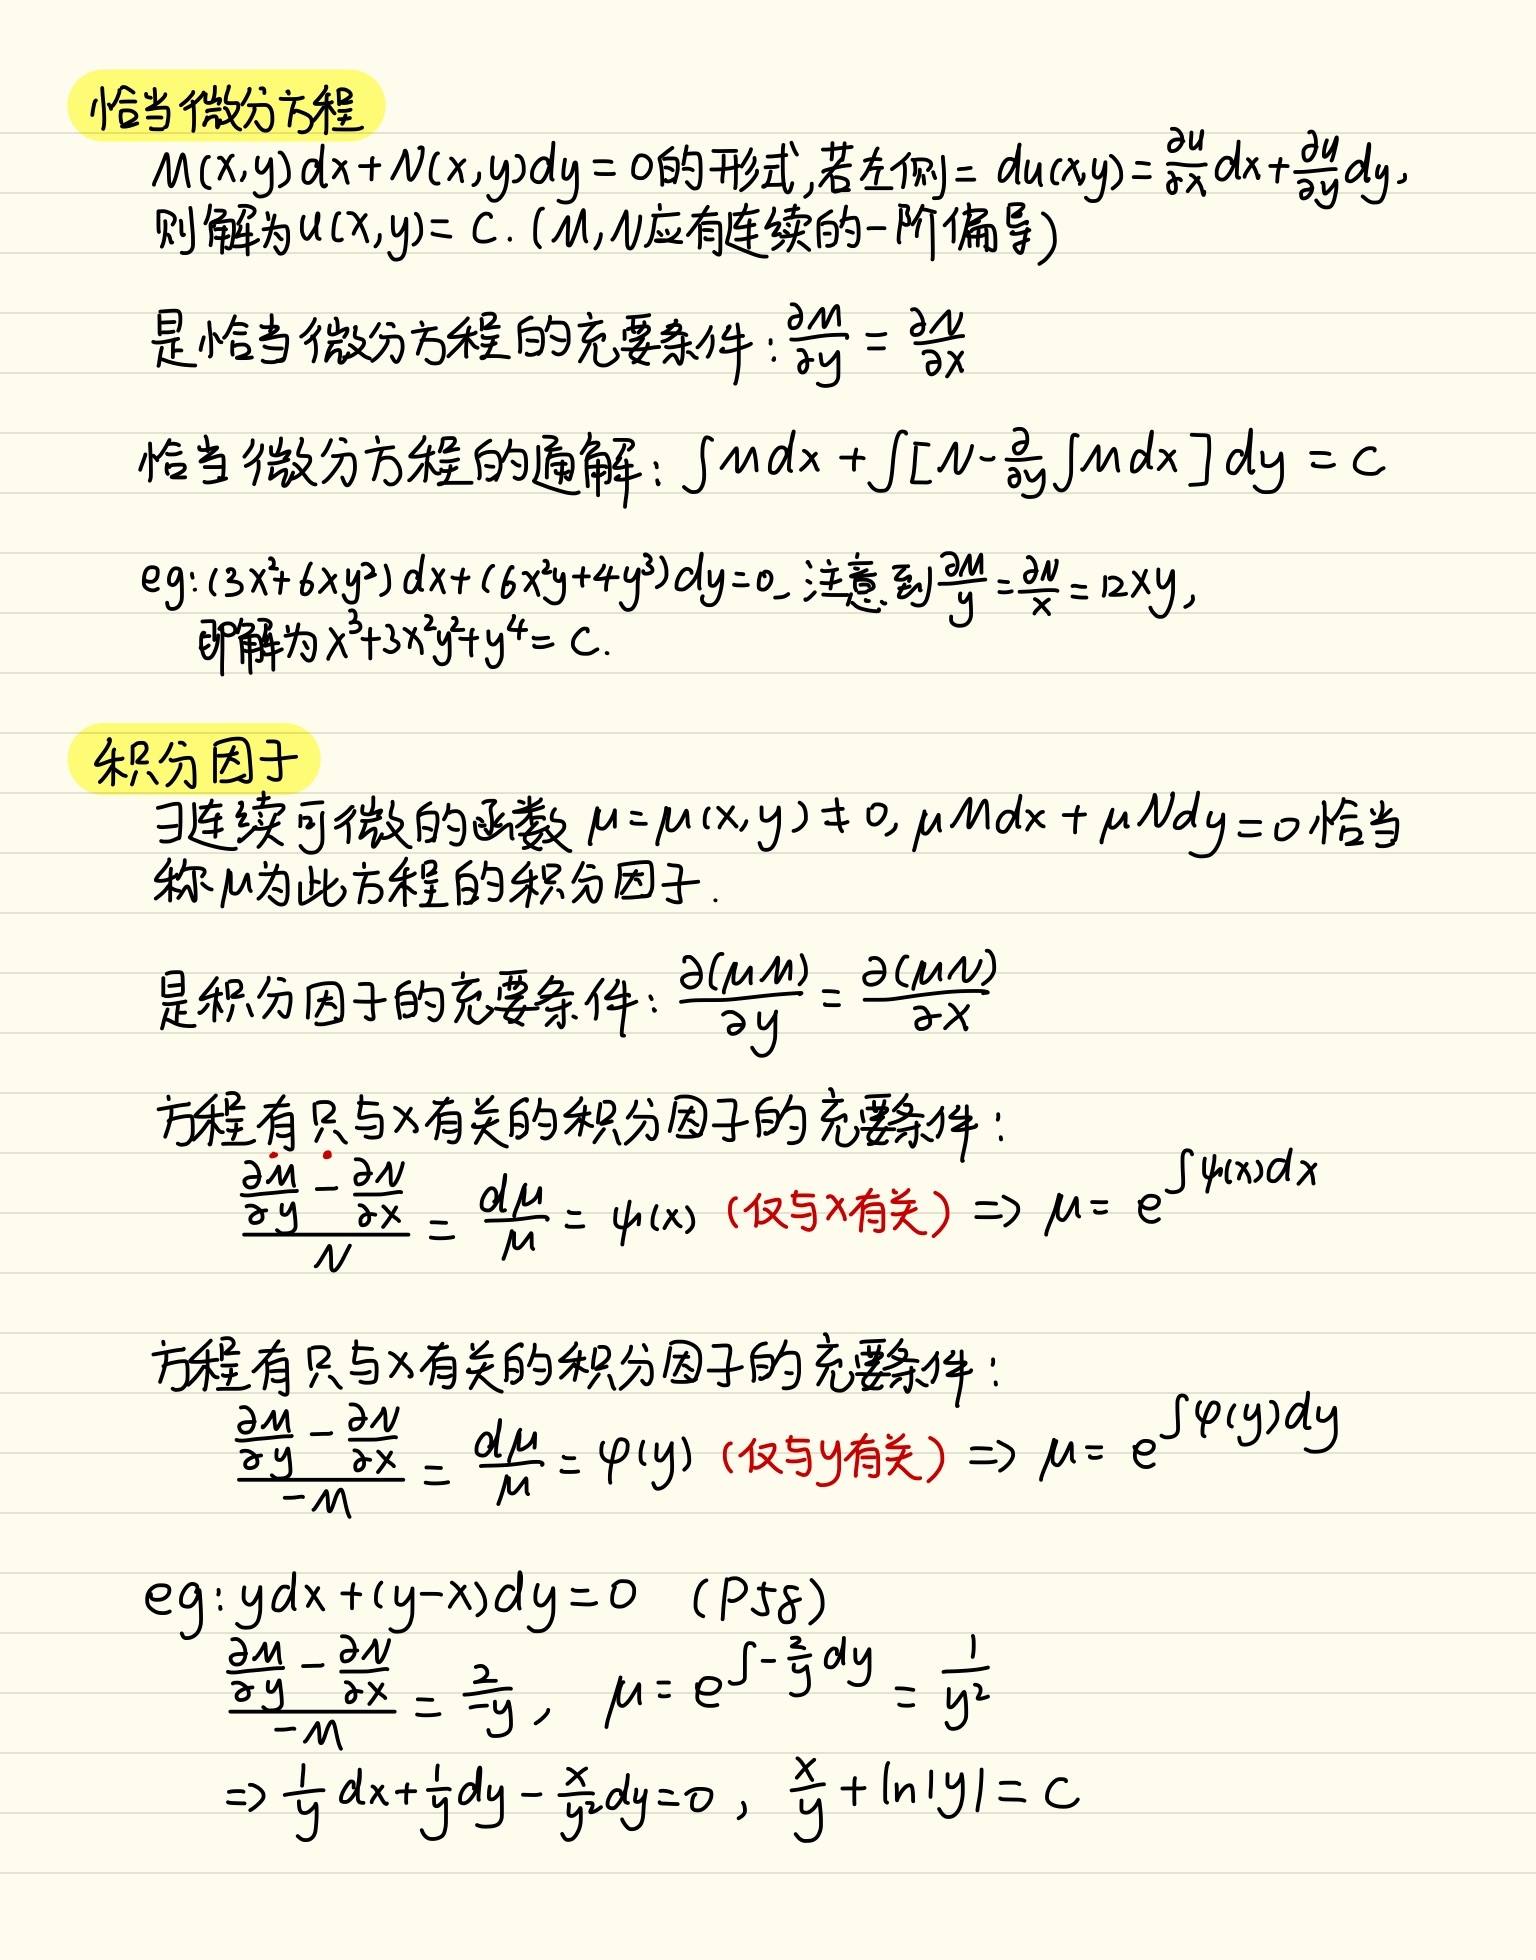 恰当微分方程
M(x,y)dx+N(x,y)dy=0的形式,若左侧= du(x,y)=∂u/∂x dx+∂u/∂y dy,
则解为u(x,y)= C.(M,N应有连续的一阶偏导)
是恰当微分方程的充要条件:∂M/∂y = ∂N/∂x
恰当微分方程的通解:∫Mdx+∫[N-∂/∂y∫Mdx]dy = C
eg:(3x²+6xy²)dx+(6x²y+4y³)dy=0,注意到∂M/y=∂N/x=12xy,
即解为x³+3x²y²+y⁴= C.
积分因子
∃连续可微的函数μ=μ(x,y)≠0,μMdx+μNdy=0恰当
称μ为此方程的积分因子.
是积分因子的充要条件:∂(μM)/∂y = ∂(μN)/∂x
方程有只与x有关的积分因子的充要条件:
(∂M/∂y-∂N/∂x)/N = dμ/μ = ψ(x) (仅与x有关) => μ= e^∫ψ(x)dx
方程有只与x有关的积分因子的充要条件:
(∂M/∂y-∂N/∂x)/-M = dμ/μ = φ(y) (仅与y有关) => μ= e^∫φ(y)dy
eg:ydx+(y-x)dy=0 (P58)
(∂M/∂y-∂N/∂x)/-M = 2/-y, μ= e^∫-2/y dy = 1/y²
=> 1/y dx+1/y dy-x/y² dy=0, x/y+ln|y|= C